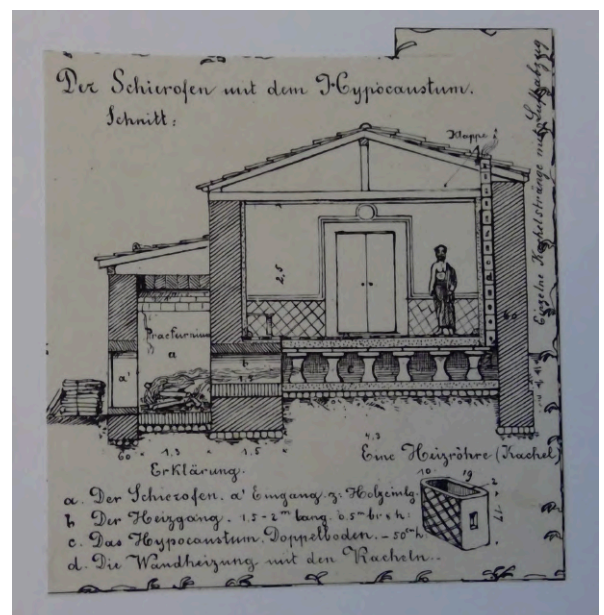 Der Schierofen mit dem Hypocaustum.
Schnitt:
Klappe
Einzelne Kachelstränge mit Luftabzug
2,5
Praefurnium
a
a'
b
1,1
c
60
60 1,3 1,5 4,3
Erklärung.
Eine Heizröhre (Kachel)
10 19 2
17
a. Der Schierofen. a' Eingang z: Holzeinlg.
b Der Heizgang. 1.5-2m lang. 0.5m br x h:
c. Das Hypocaustum. Doppelboden. - 50cm h
d. Die Wandheizung mit den Kacheln.